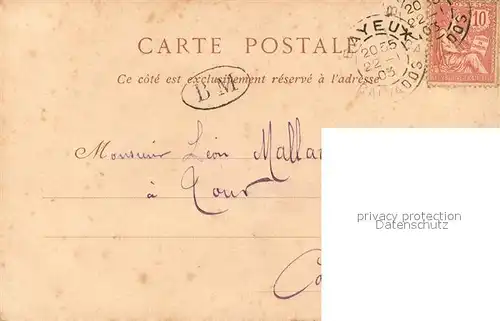 CARTE POSTALE
Ce côté est exclusivement réservé à l'adresse
BM
BAYEUX
20 55
22 -11
03
10
Monsieur Léon Mallar
à Tour
privacy protection
Datenschutz